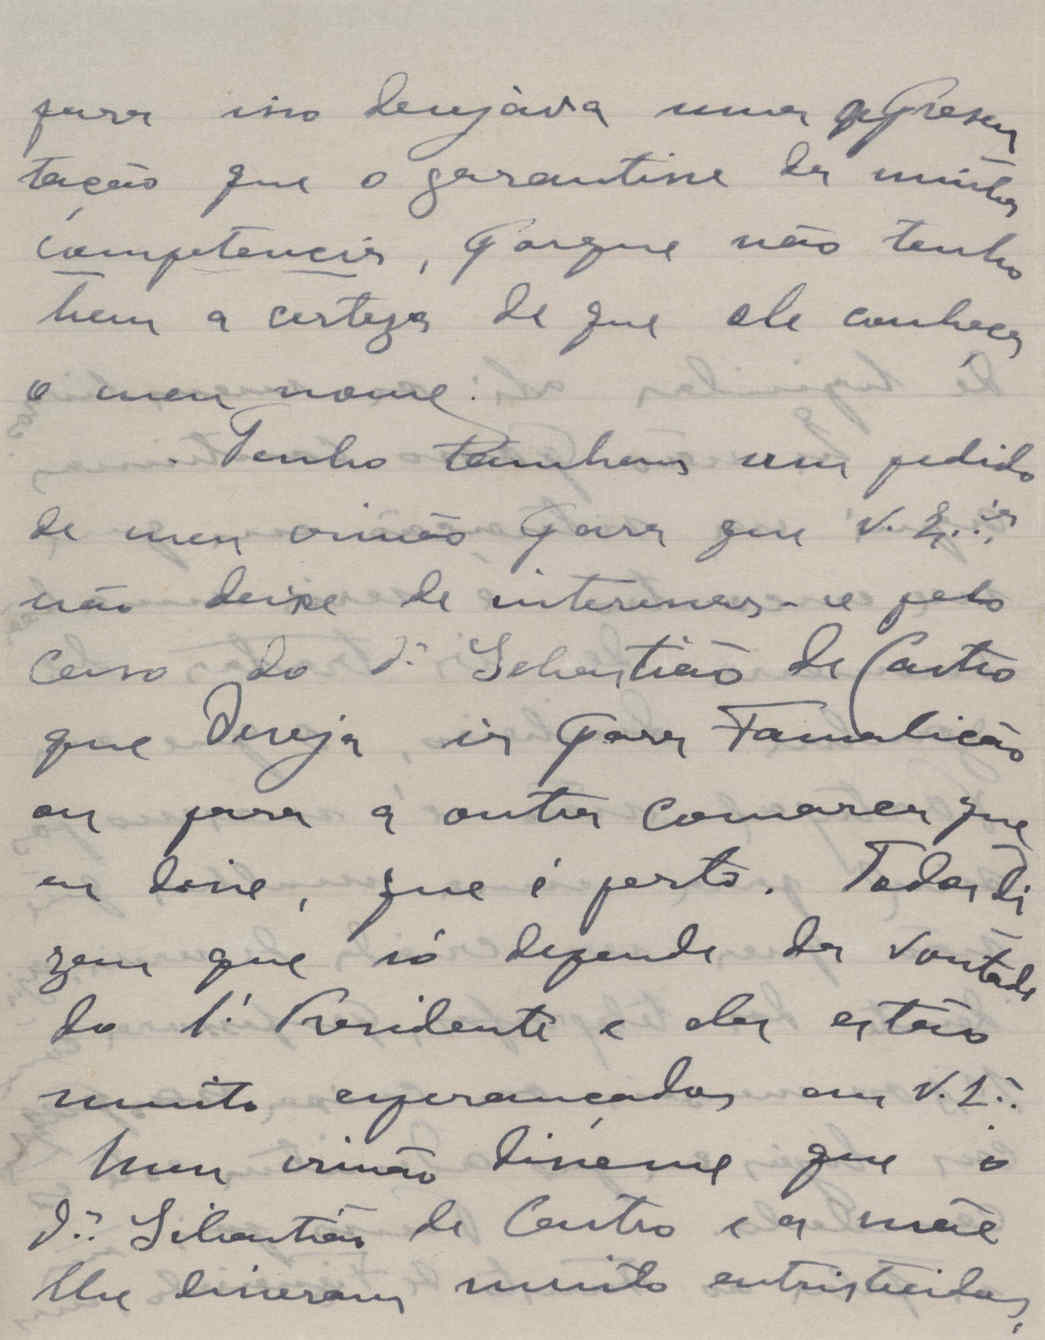 para isso desejava uma apresen
tação que o garantisse da minha
competencia, porque não tenho
bem a certeza de que ele conheça
o meu nome.
Tenho tambem um pedido
de meu irmão para que V. Ex.cia
não deixe de interessar-se pelo
caso do Dr. Sebastião de Castro
que deseja ir para Famalicão
ou para a outra comarca que
eu disse, que é perto. Todos di
zem que só depende da vontade
do Sr. Presidente e eles estão
muito esperançados em V. Ex.
Meu irmão disse-me que o
Dr. Sebastião de Castro e a mãe
lhe disseram muito entristecidos,